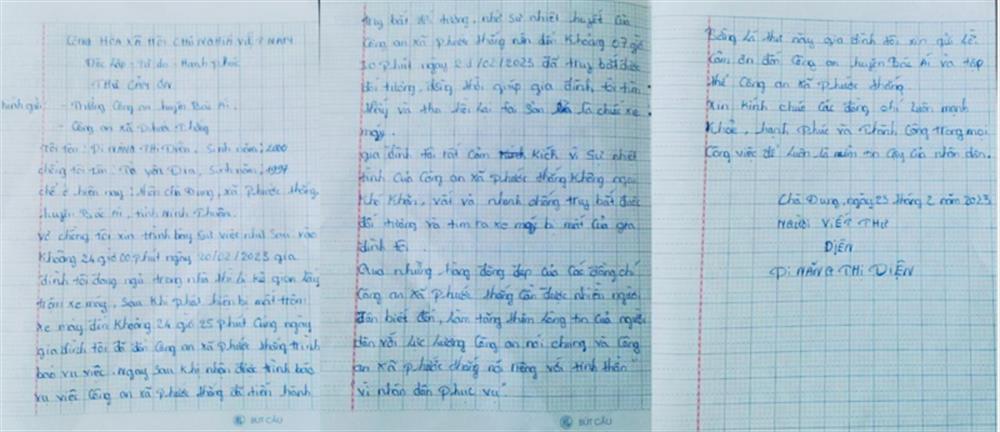 CỘNG HÒA XÃ HỘI CHỦ NGHĨA VIỆT NAM
Độc lập - Tự do - Hạnh phúc
THƯ CẢM ƠN
Kính gửi: - Trưởng Công an huyện Bác Ái.
- Công an xã Phước Thắng
Tôi tên: Pi NĂNG THỊ DIỆN, Sinh năm: 2000
chồng tôi tên: Tà Yên Dia, Sinh năm: 1997
chỗ ở hiện nay: thôn Chà Dung, xã Phước thắng,
huyện Bác Ái, tỉnh Ninh Thuận.
Vợ chồng tôi xin trình bày Sự việc như Sau: vào
Khoảng 24 giờ 00 phút ngày 20/02/2023 gia
đình tôi đang ngủ trong nhà thì bị kẻ gian lấy
trộm xe máy, Sau khi phát hiện bị mất trộm
xe máy đến Khoảng 24 giờ 25 phút Cùng ngày
gia đình tôi đã đến Công an xã Phước thắng trình
báo vụ việc. ngay sau khi nhận được trình báo
vụ việc Công an xã Phước thắng đã tiến hành
BÚT CẦU
truy bắt đối tượng, nhờ sự nhiệt huyết Của
Công an xã phước thắng nên đến Khoảng 07 giờ
30 phút ngày 21/02/2023 đã truy bắt được
đối tượng, đồng thời giúp gia đình tôi tìm
thấy và thu hồi lại tài sản là chiếc xe
máy.
gia đình tôi rất Cảm Kích vì Sự nhiệt
tình Của Công an xã phước thắng Không ngại
Khó Khăn, vất vả nhanh chóng truy bắt được
đối tượng và tìm ra xe máy bị mất Của gia
đình tôi.
Qua những hành động đẹp Của Các đồng chí
Công an xã Phước thắng Cần được nhiều người
dân biết đến, làm tăng thêm lòng tin Của người
dân với lực lượng Công an nói chung và Công
an xã Phước thắng nói riêng với tinh thần "
vì nhân dân phục vụ".
BÚT CẦU
Bằng lá thư này gia đình tôi xin gửi lời
Cảm ơn đến Công an huyện Bác Ái và tập
thể Công an xã Phước thắng.
Xin Kính chúc Các đồng chí luôn mạnh
Khỏe, hạnh phúc và thành Công trong mọi
Công việc để luôn là niềm tin Cậy Của nhân dân.
Chà Dung, ngày 23 tháng 2 năm 2023
NGƯỜI VIẾT THƯ
DIỆN
Pi NĂNG THỊ DIỆN